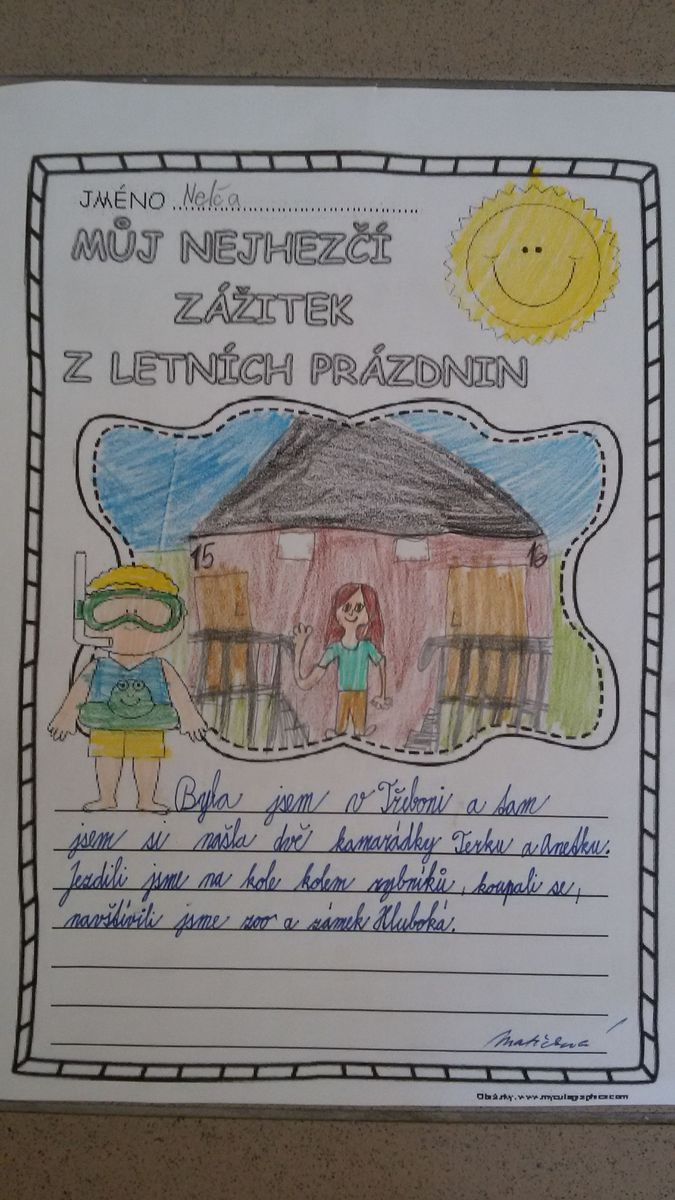 JMÉNO Nelča
MŮJ NEJHEZČÍ
ZÁŽITEK
Z LETNÍCH PRÁZDNIN
15 16
Byla jsem v Třeboni a tam
jsem si našla dvě kamarádky Terku a Anetku.
Jezdili jsme na kole kolem rybníků, koupali se,
navštívili jsme zoo a zámek Hluboká.
Obrázky: www.mycutegraphics.com